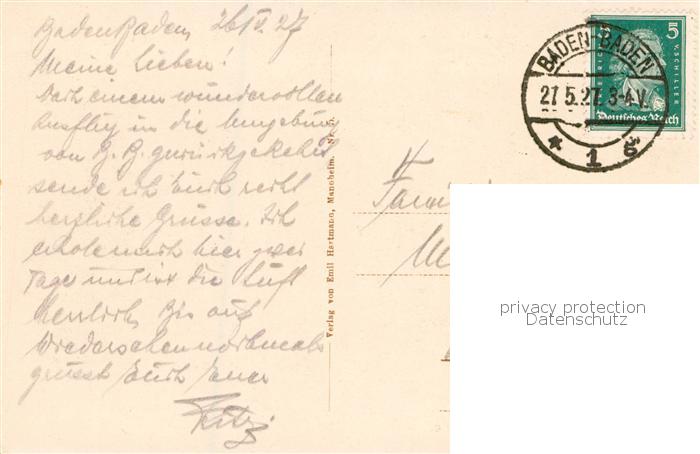 Baden Baden, 26 V. 27
Meine Lieben!
Nach einem wundervollen
Ausflug in die Umgebung
von B. B. zurückgekehrt
sende ich Euch recht
herzliche Grüsse. Ich
erhole mich hier zwei
Tage und ist die Luft
herrlich. Bis auf
Wiedersehen nochmals
grüsst Euch Euer
Fritz
Verlag von Emil Hartmann, Mannheim.
BADEN-BADEN
27.5.27. 3-4 V.
* 1
5
F. V. SCHILLER
Deutsches Reich
privacy protection
Datenschutz